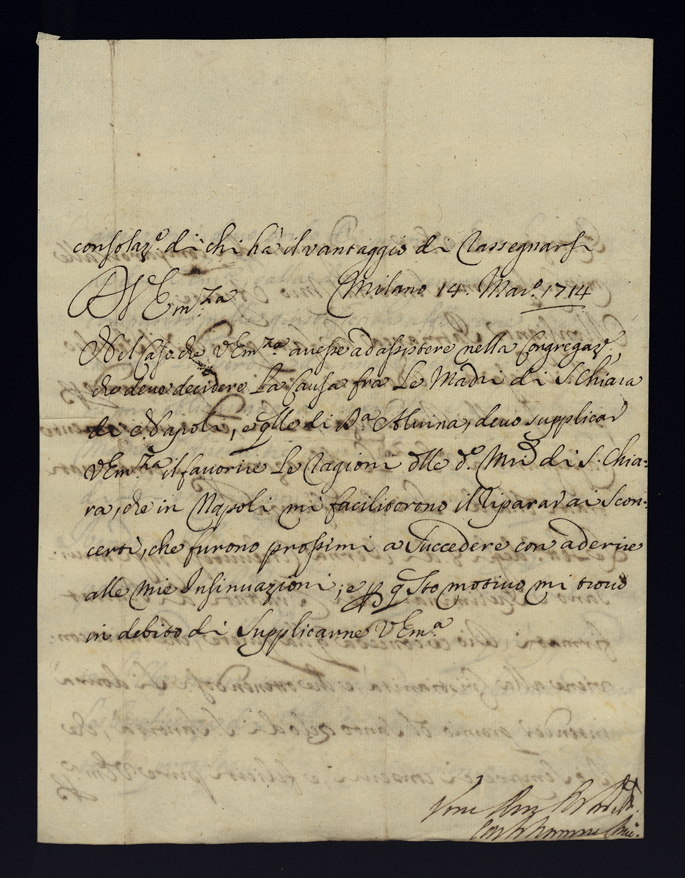 consolaz.e di chi hà il vantaggio di rassegnarsi
Di V Em.za Milano 14. Mar.o 1714
Nel caso che V Em.za avesse ad assistere nella Congregaz.
che deve decidere la Causa fra le Madri di S. Chiara
di Napoli, e qlle di D.a Alvina, devo supplicar
V Em.za il favorire le ragioni dlle d.e Mri di S. Chia-
ra, che in Napoli mi faciliorono il riparar ai scon-
certi, che furono prossimi a succedere con aderire
alle mie Insinuazioni, e p qsto motivo mi trovo
in debito di supplicarne V Em.a